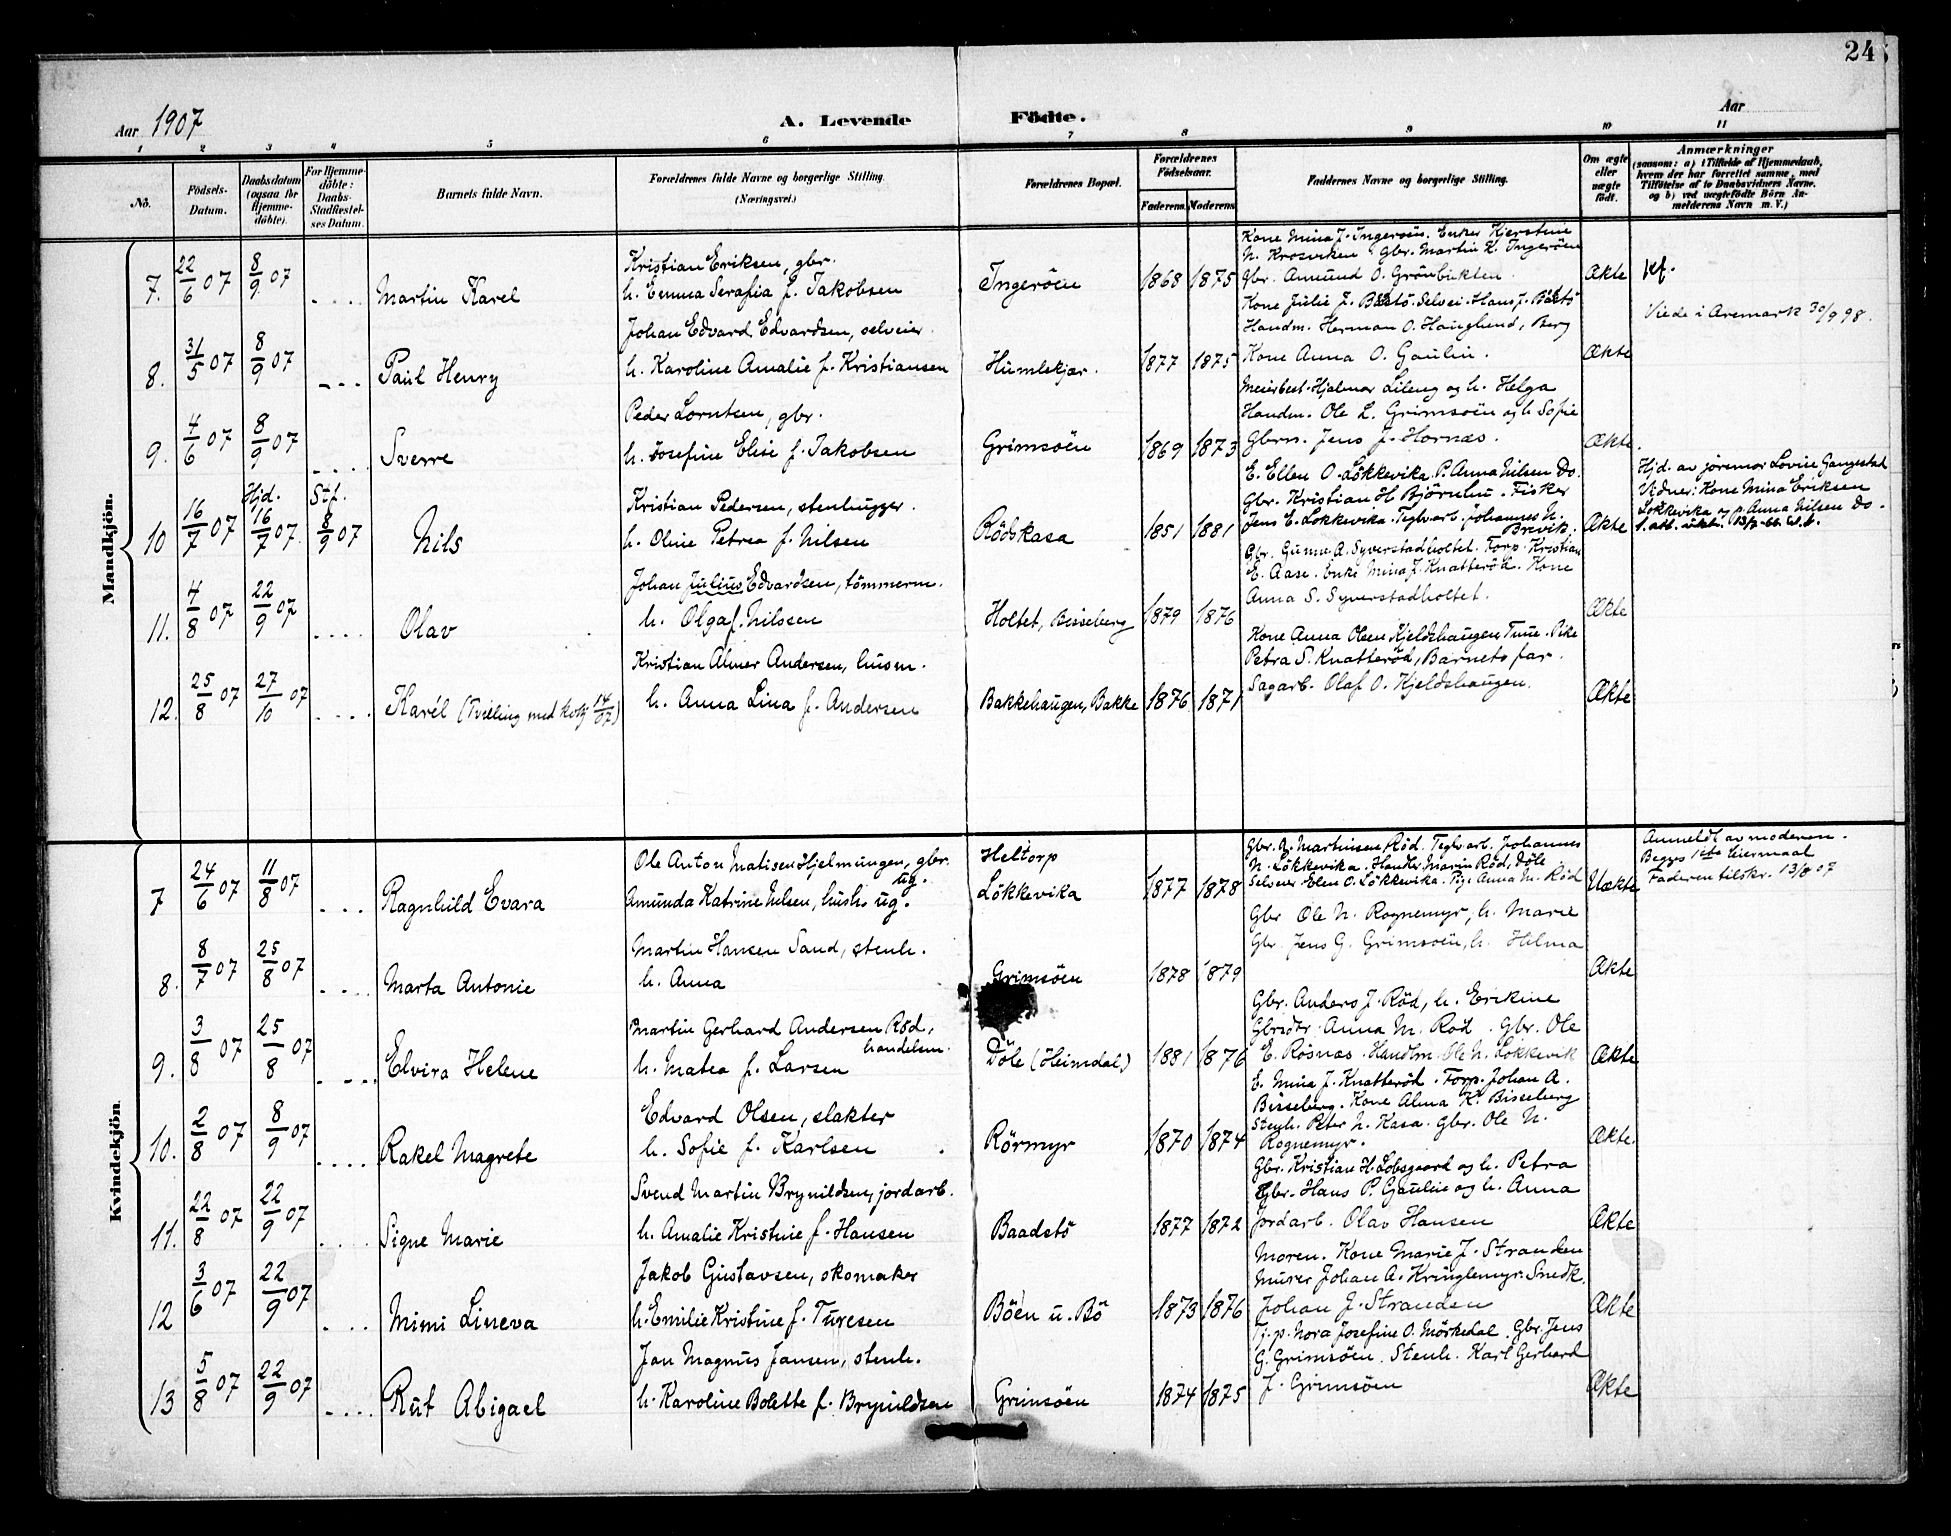 24
Aar 1907
A. Levende Födte.
Aar
1 2 3 4 5 6 7 8 9 10 11
No.
Födsels-Datum.
Daabsdatum (ogsaa for Hjemme-döbte).
For Hjemme-döbte: Daabs-Stadfæstel-ses Datum.
Barnets fulde Navn.
Forældrenes fulde Navne og borgerlige Stilling. (Næringsvei.)
Forældrenes Bopæl.
Forældrenes Födselsaar.
Faderens. Moderens.
Faddernes Navne og borgerlige Stilling.
Om ægte eller uægte födt.
Anmærkninger
(saasom: a) i Tilfælde af Hjemmedaab, hvem der har forrettet samme, med Tilföielse af to Daabsvidners Navne, og b) ved uægtefödte Börn An-melderens Navn m. V.)
Mandkjön.
7. 22/6 07 8/9 07 .... Martin Karel
Kristian Eriksen, gbr.
h. Emma Serafia f. Jakobsen
Ingeröen 1868 1875
Kone Mina J. Ingeröen. Enke Kjerstine
N. Krosviken. Gbr. Martin K. Ingeröen
Gbr. Amund O. Grönbukten.
Ækte
8. 31/5 07 8/9 07 .... Paul Henry
Johan Edvard Edvardsen, selveier.
h. Karoline Amalie f. Kristiansen
Humlekjær. 1877 1875
Kone Julie J. Bøstö. Selvei. Hans J.
Handm. Herman O. Hauglund, Berg
Kone Anna O. Gaulin.
Ækte
Viede i Aremark 30/9 98.
9. 4/6 07 8/9 07 .... Sverre
Peder Lorntsen, gbr.
h. Josefine Elise f. Jakobsen
Grimsöen 1869 1873
Meierbest. Hjalmar Lileng og h. Helga
Handm. Ole L. Grimsöen og h. Sofie
Gbrn. Jens J. Hornæs.
Ækte.
10 16/7 07 Hjd. 16/7 07. Stf. 8/9 07 Nils
Kristian Pedersen, stenhugger.
h. Oline Petrea f. Nilsen
Rödskasa 1851 1881
E. Ellen O. Lökkevika. P. Anna Nilsen Do.
Gbr. Kristian H. Björnlu. Fisker
Jens E. Lokkevika. Teglvarb. Johannes N.
Brevik.
Ækte
Hjd. av jormor Lovise Gangestad
Vidner: Kone Mina Eriksen
Lökkevika og p. Anna Nilsen Do.
11. 4/8 07 22/9 07 .... Olav
Johan Julius Edvardsen, tömmerm.
h. Olga f. Nilssen
Holtet, Bisseberg 1879 1876
Gbr. Gunne A. Syverstadholtet. Torp. Kristian
E. Aase. Enke Mina J. Knatteröd. Kone
Anna S. Syverstadholtet.
Ækte
12. 25/8 07 27/10 07 .... Karél (Tvilling med kvkj 14/07)
Kristian Almer Andersen, husm.
h. Anna Lina f. Andersen
Bakkehaugen, Bakke 1876 1871
Kone Anna Olsen Kjeldshaugen Tune. Pike
Petra S. Knatteröd, Barnets far.
Sagarb. Olaf O. Kjeldshaugen.
Ækte
Kvindekjön.
7 24/6 07 11/8 07 .... Ragnhild Evara
Ole Anton Matisen Hjelmungen, gbr. ug.
Amunda Katrine Nilsen, hush. ug.
Heltorp
Lökkevika 1877 1878
Gbr. N. Martinsen Röd. Teglv.arb. Johannes
N. Lökkevika. Handler Marin Röd, Döle
Selveier Elen O. Lökkevika. Pige Anna M. Röd
Uækte
Anmeldt av moderen.
Begges 1ste leiermaal
Faderen tilskr. 13/8 07
8. 8/7 07 25/8 07 .... Marta Antonie
Martin Hansen Sand, stenh.
h. Anna
Grimsöen 1878 1879
Gbr Ole N. Rognemyr, h. Marie
Gbr. Jens G. Grimsoën, h. Hilma
Ækte
9. 3/8 07 25/8 07 .... Elvira Helene
Martin Gerhard Andersen Röd, handelsm.
h. Matea f. Larsen
Döle (Heimdal) 1881 1876
Gbr. Anders J. Röd, h. Erikine
Gbrsdtr. Anna M. Röd. Gbr. Ole
E. Rösnæs. Handlm. Ole N. Lökkevik
Ækte
10. 2/8 07 8/9 07 .... Rakel Magrete
Edvard Olsen, slakter
h. Sofie f. Karlsen
Rörmyr 1870 1874
E. Mina J. Knatteröd. Torp. Johan A.
Bisseberg. Kone Alma K. Bisseberg
Stenh. Peter N. Kasa. Gbr. Ole N.
Rognemyr.
Ækte.
11. 22/8 07 22/9 07 .... Signe Marie
Svend Martin Brynildsen, jordarb.
h. Amalie Kristine f. Hansen
Baadstö 1877 1872
Gbr. Kristian H. Löbsgaard og h. Petra
Gbr. Hans P. Gaulie og h. Anna
Jordarb. Olav Hansen
Ækte
12 3/6 07 22/9 07 .... Mimi Lineva
Jakob Gustavsen, skomaker
h. Emilie Kristine f. Turesen
Böen u. Bö 1873 1876
Moren. Kone Marie J. Stranden
Murer Johan A. Kringlemyr. Snedk.
Johan J. Stranden
Ækte
13 5/8 07 22/9 07 .... Rut Abigael
Jan Magnus Jansen, stenh.
h. Karoline Bolette f. Brynildsen
Grimsöen 1874 1875
Tj.p. Nora Josefine O. Mörkedal. Gbr. Jens
G. Grimsöen. Stenh. Karl Gerhard
J. Grimsöen
Ækte